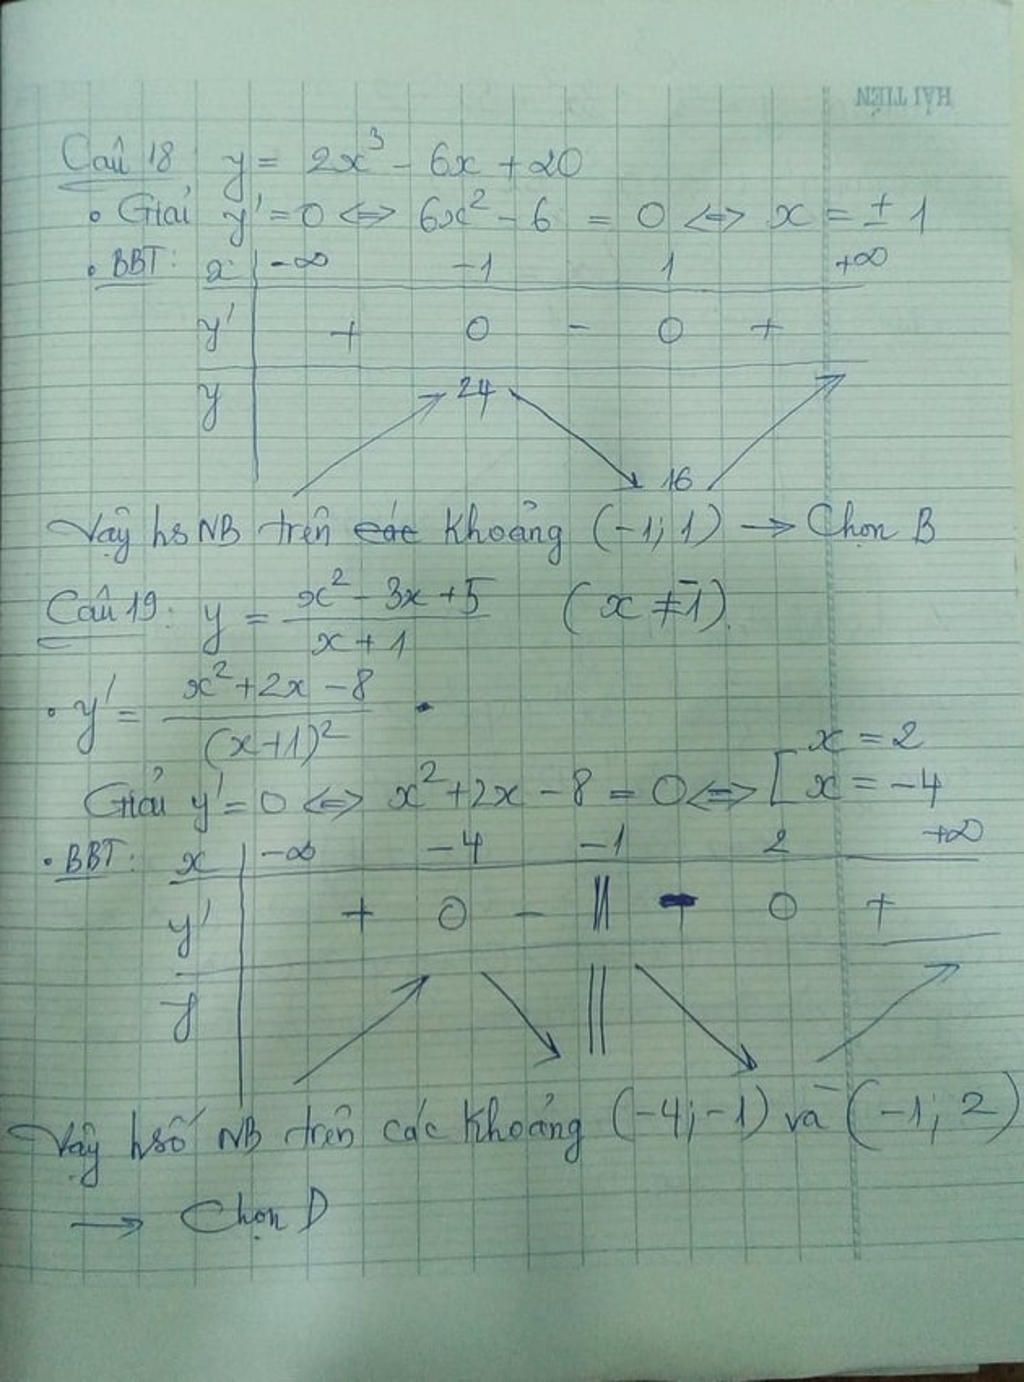 HẢI TIẾN
Câu 18 y = 2x³ - 6x + 20
• Giải y' = 0 <=> 6x² - 6 = 0 <=> x = ± 1
• BBT: x -∞ -1 1 +∞
y' + 0 - 0 +
y 24
16
Vậy hs NB trên các khoảng (-1; 1) → Chọn B
Câu 19: y = (x² - 3x + 5)/(x + 1) (x ≠ -1).
• y' = (x² + 2x - 8)/(x+1)²
Giải y' = 0 <=> x² + 2x - 8 = 0 <=> [ x = 2
x = -4
• BBT: x -∞ -4 -1 2 +∞
y' + 0 - || - 0 +
y ||
Vậy hsố NB trên các khoảng (-4; -1) và (-1; 2)
→ Chọn D